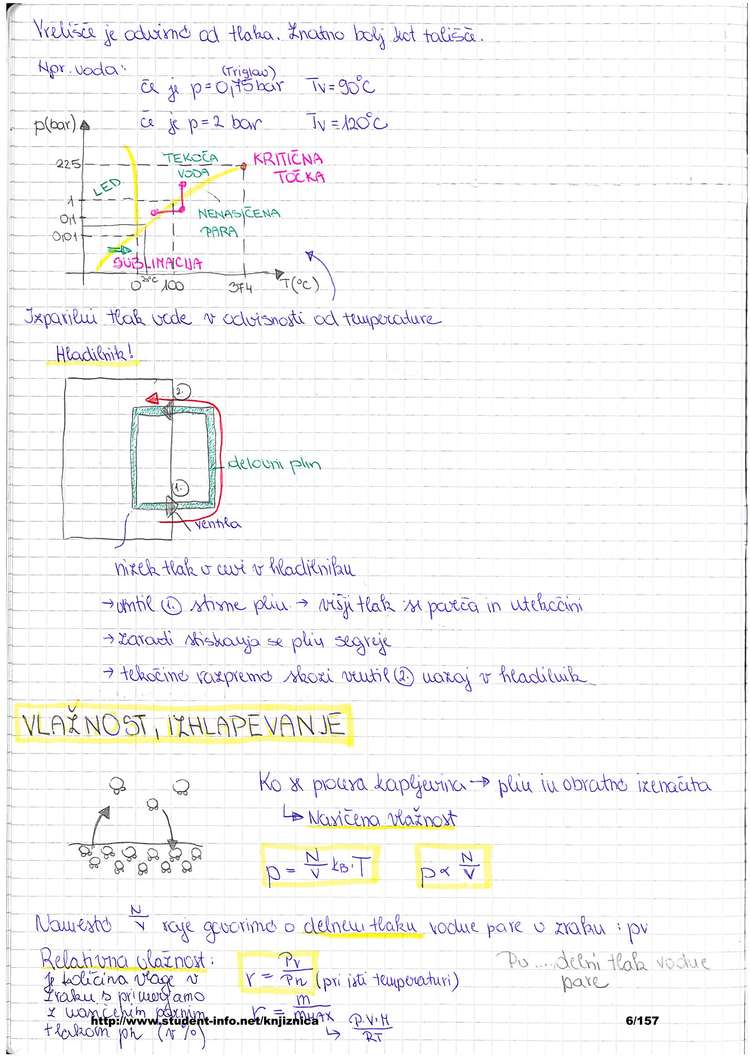 Vrelišče je odvisno od tlaka. Znatno bolj kot tališče.
Npr. voda:
(Triglav)
če je p=0,75 bar Tv=90°C
če je p=2 bar Tv=120°C
p(bar)
225
1
0,1
0,01
LED
TEKOČA
VODA
KRITIČNA
TOČKA
NENASIČENA
PARA
SUBLIMACIJA
0 100 374 T(°C)
Izparilni tlak vode v odvisnosti od temperature
Hladilnik!
2.
delovni plin
1.
ventila
nizek tlak v cevi v hladilniku
→ ventil 1. stisne plin → višji tlak se poveča in utekočini
→ zaradi stiskanja se plin segreje
→ tekočino razpremo skozi ventil 2. nazaj v hladilnik
VLAŽNOST, IZHLAPEVANJE
Ko se procesa kapljevina → plin in obratno izenačita
↳ Nasičena vlažnost
p = N/V kB·T p ∝ N/V
Namesto N/V raje govorimo o delnem tlaku vodne pare v zraku : pv
Relativna vlažnost:
je količina vlage v
zraku s primerjamo
z nasičenim parnim
tlakom pn (v %)
r = Pv/Pn (pri isti temperaturi)
r = m/mMAX
↳ P·V·M/RT
Pv ....delni tlak vodne
pare
http://www.student-info.net/knjiznica
6/157